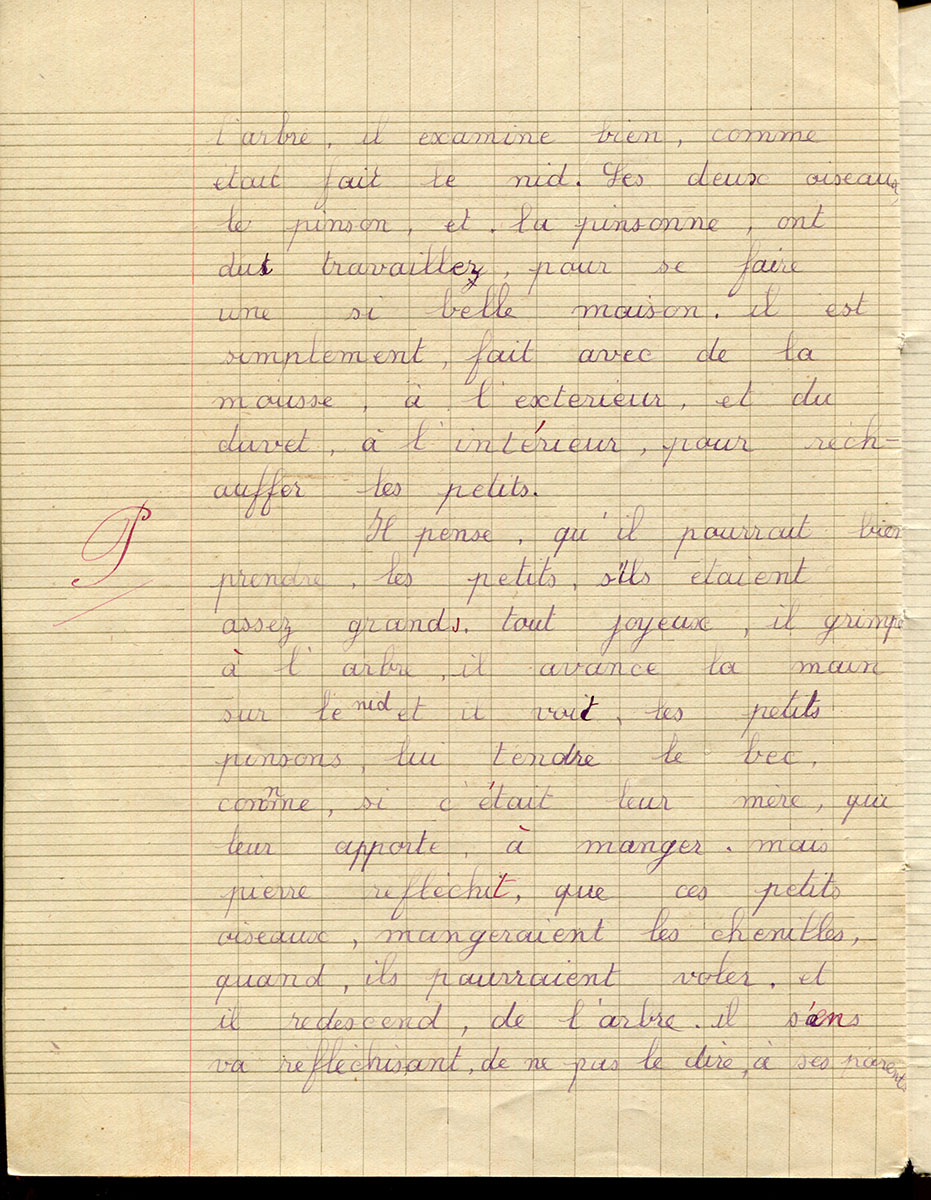 l'arbre, il examine bien, comme
etait fait le nid. Les deux oiseaux
le pinson, et, la pinsonne, ont
dut travaillez, pour se faire
une si belle maison. il est
simplement, fait avec de la
mousse, à l'exterieur, et du
duvet, à l'intérieur, pour réch-
auffer les petits.
P
Il pense, qu'il pourrait bien
prendre, les petits, s'ils etaient
assez grands. tout joyeux, il grimpe
à l'arbre, il avance la main
sur le nid et il voit, les petits
pinsons, lui tendre le bec,
comme, si c'était leur mère, qui
leur apporte, à manger. mais
pierre refléchit, que ces petits
oiseaux, mangeraient les chenilles,
quand, ils pourraient voler, et
il redescend, de l'arbre. il s'ens
va réfléchisant, de ne pas le dire, à ses parents